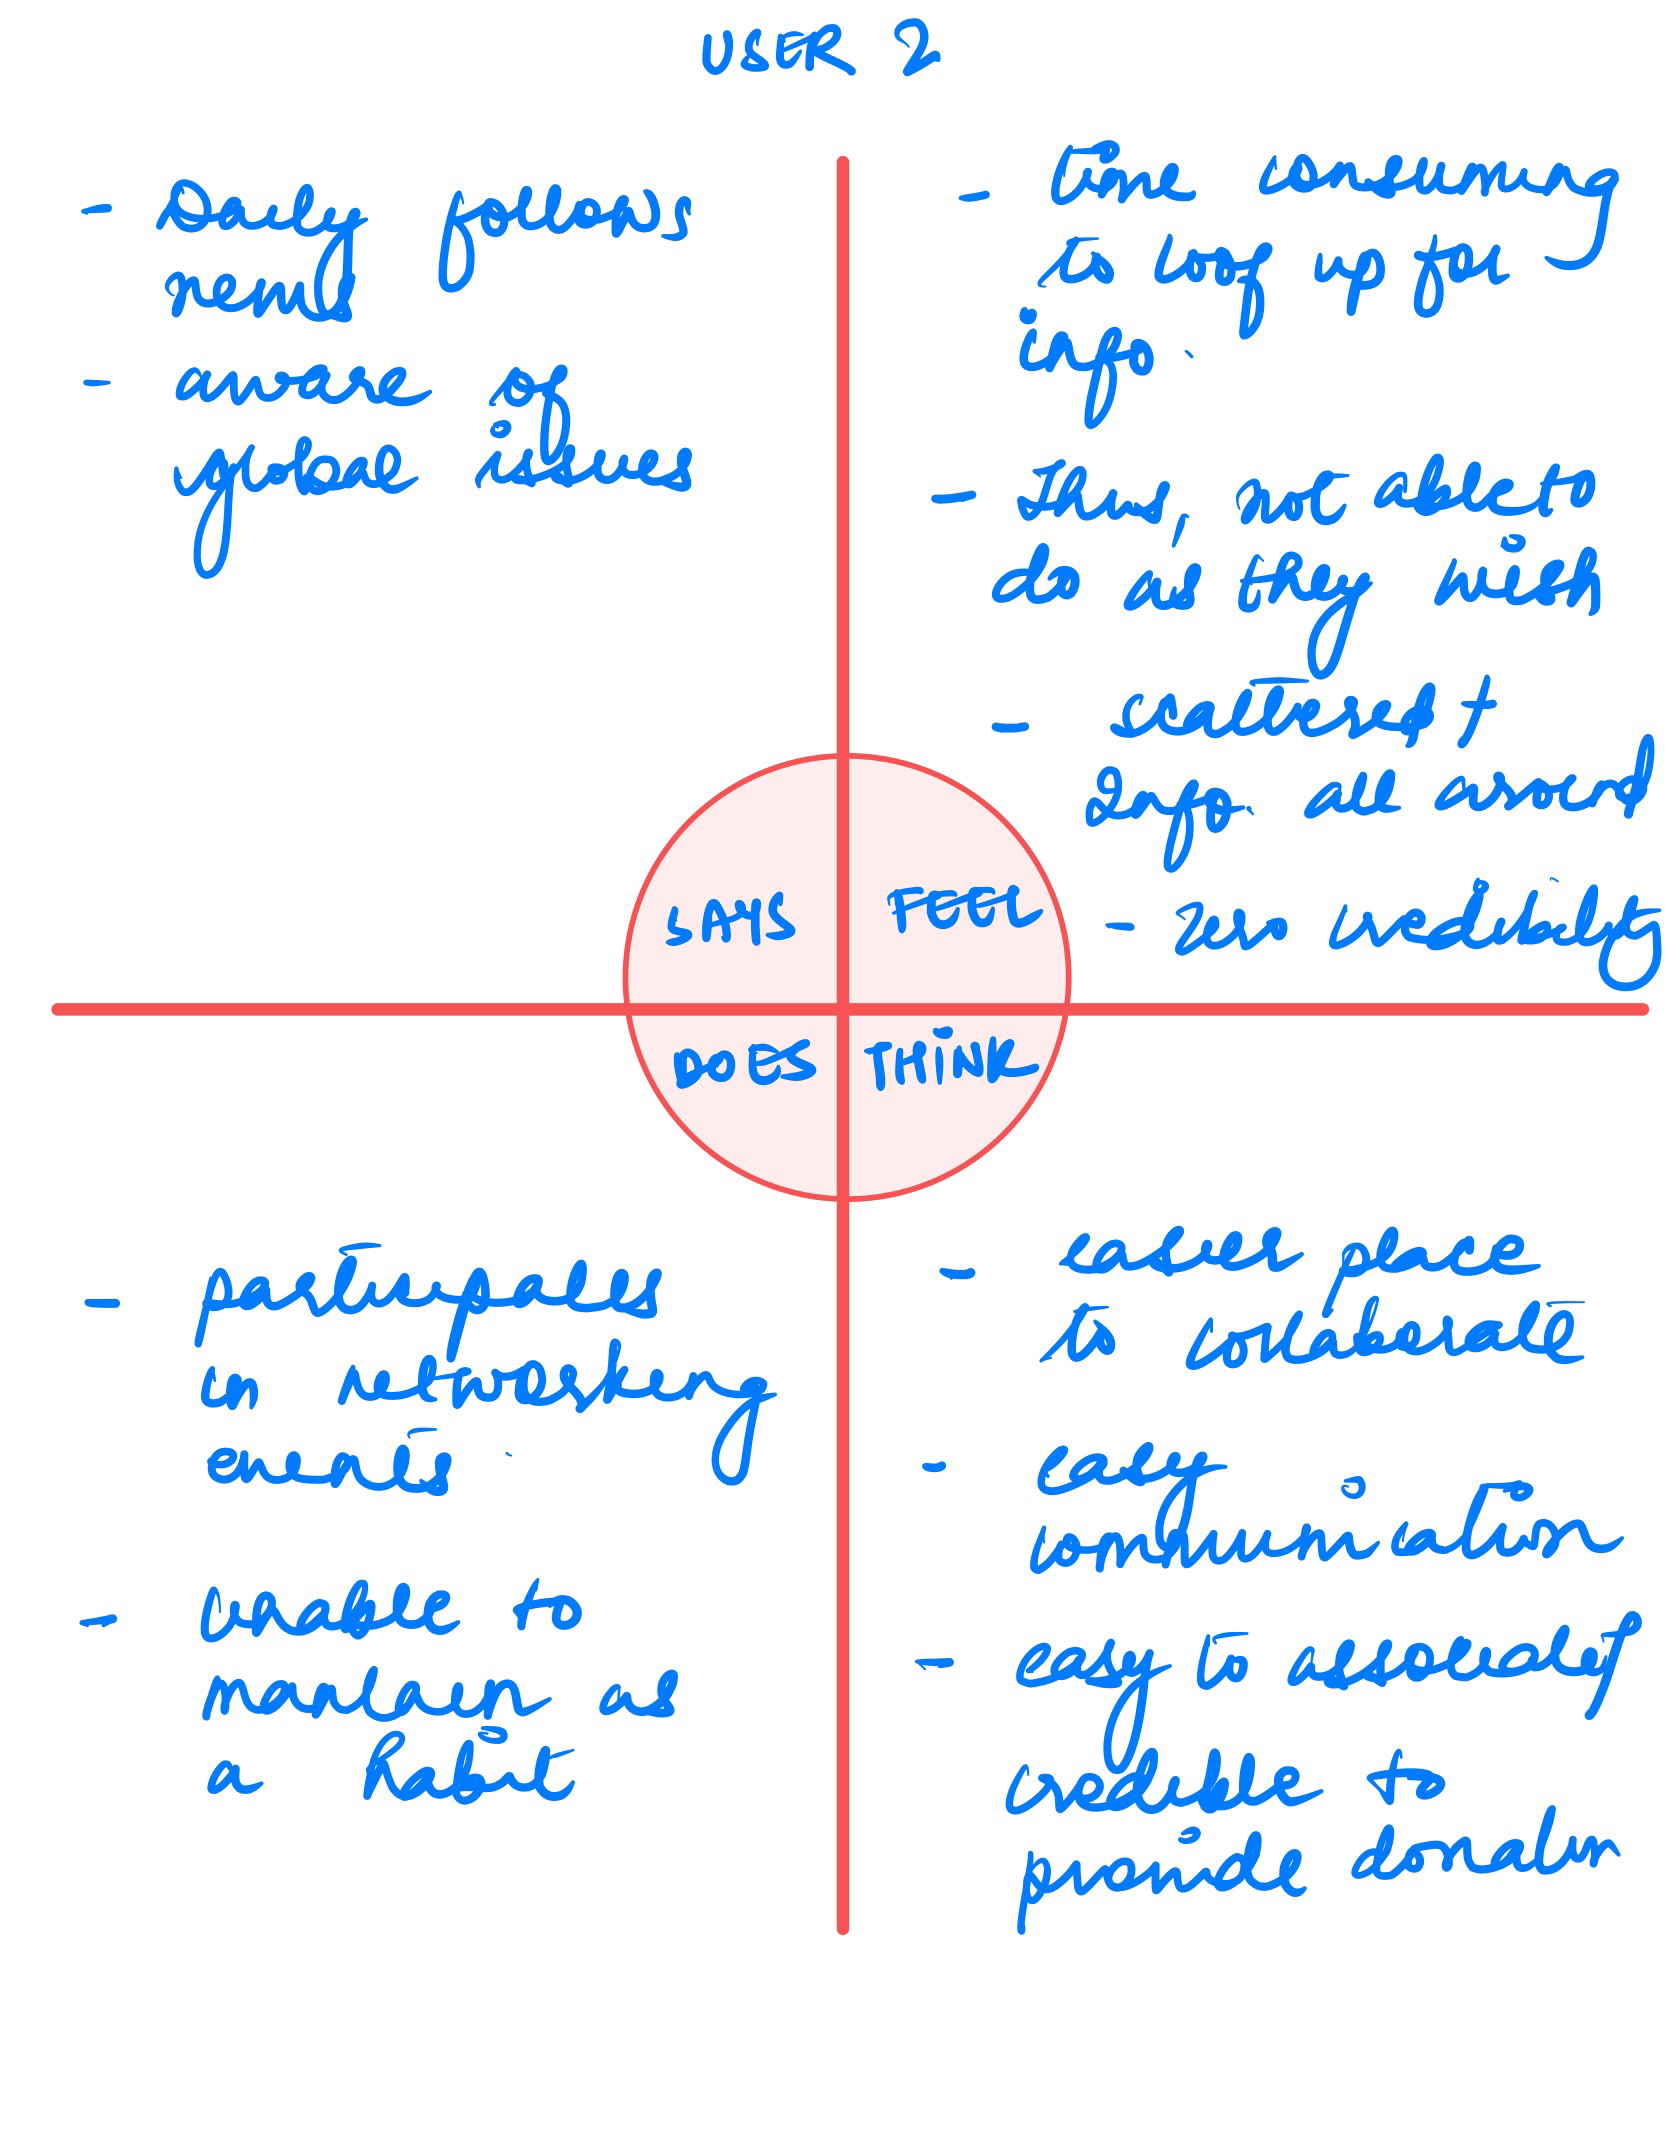 USER 2
- Daily follows
news
- aware of
global issues
- time consuming
to look up for
info.
- Thus, not able to
do as they wish
- scattered
Info. all around
- zero credibility
SAYS
FEEL
DOES
THINK
- participates
in networking
events
- unable to
maintain as
a habit
- easier place
to collaborate
- easy
communication
- easy to associate
credible to
provide donation